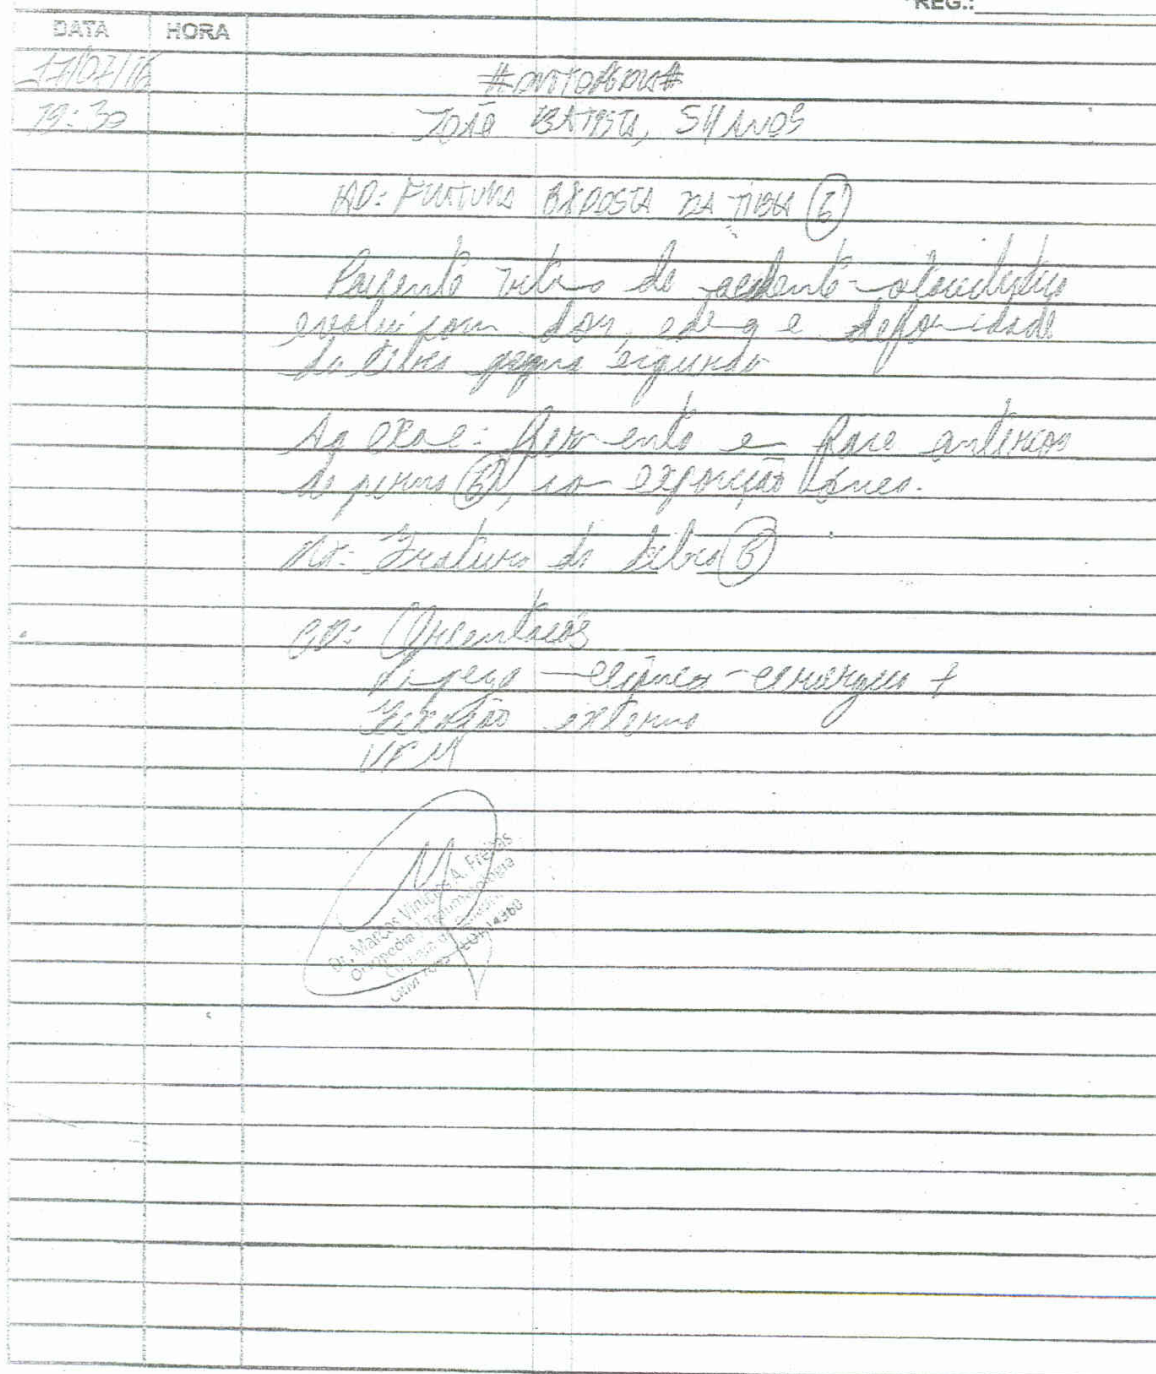 REG.:
DATA HORA
17/07/16 #ORTOPEDIA#
19:30 João BATISTA, 54 ANOS
HD: FRATURA EXPOSTA DA TIBIA (E)
Paciente vitima de acidente
evolui com dor, edema e deformidade
da tibia esquerda
Ao exame: Ferimento em face anterior
da perna (E), com exposição óssea.
RX: Fratura da tibia (E)
CD: Orientações
Limpeza mecânica-cirúrgica +
Fixação externa
Dr. Marcos Vinicius A. Freitas
Ortopedia Traumatologia
CRM